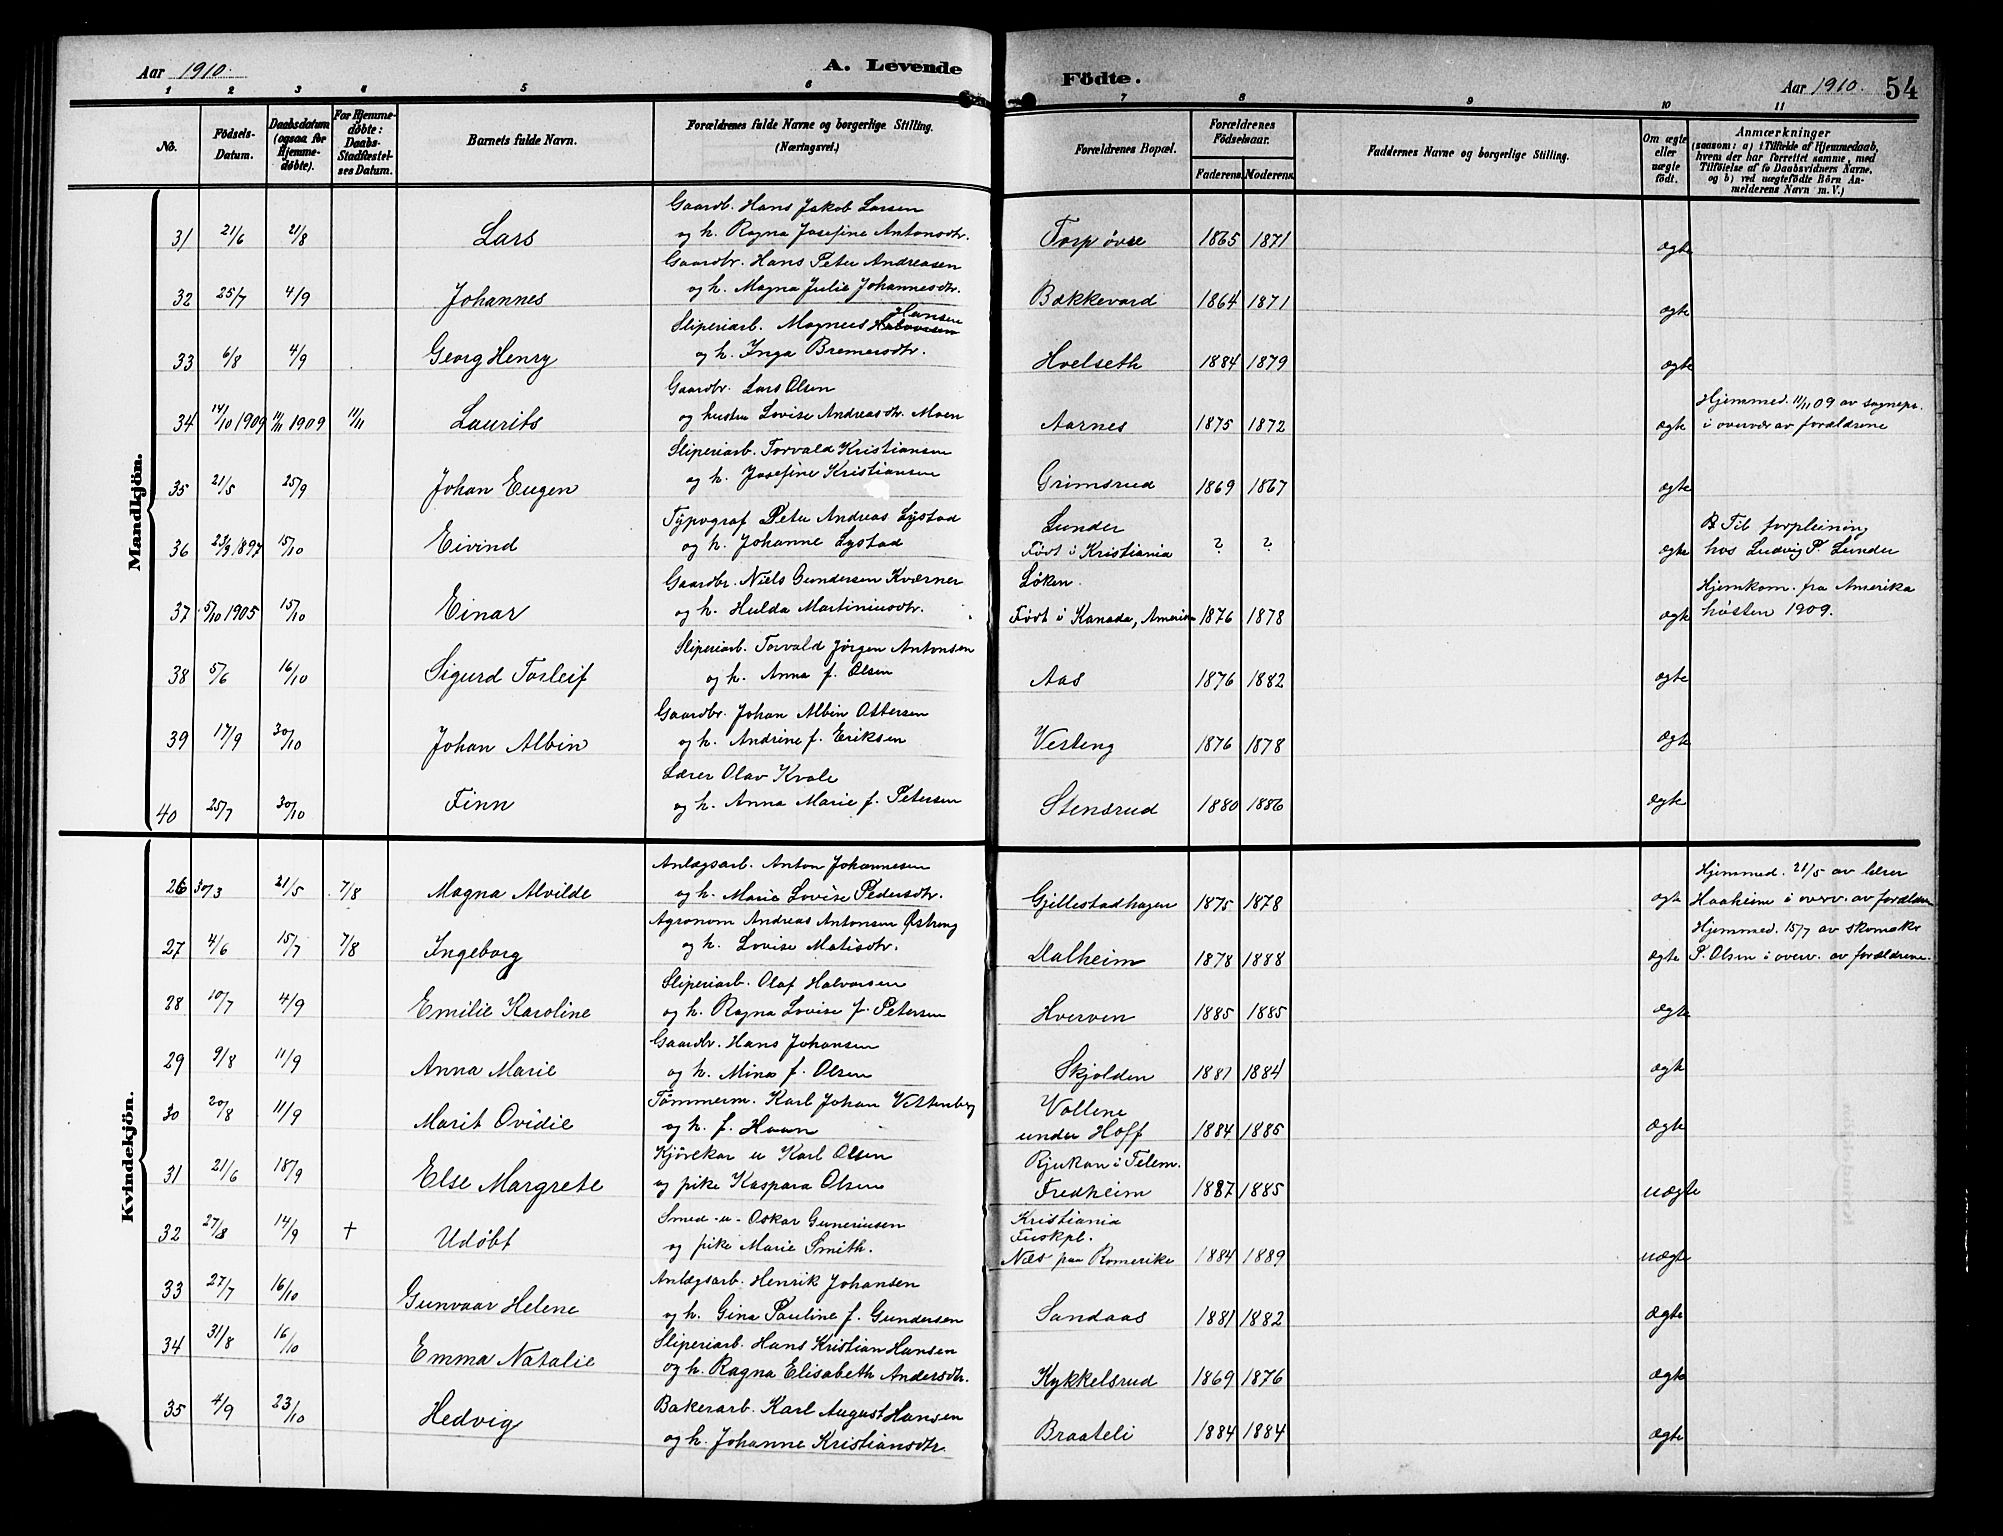 Aar 1910. A. Levende Födte. Aar 1910. 54
1 2 3 4 5 6 7 8 9 10 11
No. Födsels-Datum. Daabsdatum (ogsaa for Hjemme-döbte). For Hjemme-döbte: Daabs-Stadfæstel-ses Datum. Barnets fulde Navn. Forældrenes fulde Navne og borgerlige Stilling. (Næringsvei.) Forældrenes Bopæl. Forældrenes Födselsaar. Faderens. Moderens. Faddernes Navne og borgerlige Stilling. Om ægte eller uægte födt. Anmærkninger (saasom: a) i Tilfælde af Hjemmedaab, hvem der har forrettet samme, med Tilföielse af to Daabsvidners Navne, og b) ved uægtefödte Börn Anmelderens Navn m. V.)
Mandkjön.
Gaardb. Hans Jakob Larsen
31 21/6 21/8 Lars og h. Ragna Josefine Antonsdtr. Torp øvre 1865 1871 ægte
Gaardbr. Hans Peter Andreasen
32 25/7 4/9 Johannes og h. Magna Julie Johannesdtr. Bækkevard 1864 1871 ægte
Sliperiarb. Magnus Halvorsen Hansen
33 6/8 4/9 Georg Henry og h. Inga Bremersdtr. Hvelseth 1884 1879 ægte
Gaardbr. Lars Olsen Hjemmed. 11/11 09 av sognepr.
34 14/10 1909 11/11 1909 11/11 Laurits og hustru Lovise Andreasdtr. Moen Aarnes 1875 1872 ægte i overvær av forældrene
Sliperiarb. Torvald Kristiansen
35 21/5 25/9 Johan Eugen og h. Josefine Kristiansen Grimsrud 1869 1867 ægte
Typograf Peter Andreas Lystad Lunder Til forpleining
36 23/9 1897 15/10 Eivind og h. Johanne Lystad Født i Kristiania ? ? ægte hos Ludvig P. Lunder
Gaardbr. Niels Gundersen Kværner Løken. Hjemkom. fra Amerika
37 5/10 1905 15/10 Einar og h. Hulda Martiniusdtr. Født i Kanada, Amerika 1876 1878 ægte høsten 1909.
Sliperiarb. Torvald Jørgen Antonsen
38 5/6 16/10 Sigurd Torleif og h. Anna f. Olsen Aas 1876 1882 ægte
Gaardbr. Johan Albin Ottersen
39 17/9 30/10 Johan Albin og h. Andrine f. Eriksen Vesteng 1876 1878 ægte
Lærer Olav Kvale
40 25/7 30/10 Finn og h. Anna Marie f. Petersen Stensrud 1880 1886 ægte
Kvindekjön.
Anlægsarb. Anton Johannesen Hjemmed. 21/5 av lærer
26 30/3 21/5 7/8 Magna Alvilde og h. Marie Lovise Pedersdtr. Gjellestadhagen 1875 1878 ægt Haaheim i overv. av forældre
Agronom Andreas Antonsen Østreng Hjemmed. 15/7 av skomaker
27 4/6 15/7 7/8 Ingeborg og h. Lovise Matisdtr. Dalheim 1878 1888 ægte P. Olsen i overv. av forældrene.
Sliperiarb. Olaf Halvorsen
28 10/7 4/9 Emilie Karoline og h. Ragna Lovise f. Petersen Hverven 1885 1885 ægte
Gaardbr. Hans Johansen
29 9/8 11/9 Anna Marie og h. Mina f. Olsen Skjolden 1881 1884 ægte
Tømmerm. Karl Johan Vittenberg Vollene
30 20/8 11/9 Marit Ovidie og h. f. Haavn under Hoff 1884 1885 ægte
Kjørekar u Karl Olsen Rjukan i Telem.
31 21/6 18/9 Else Margrete og pike Kaspara Olsen Fredheim 1887 1885 uægte
Smed u. Oskar Guneriusen Kristiania
32 27/8 14/9 + Udøbt og pike Marie Smith. Fuskpl. Næs paa Romerike 1884 1889 uægte
Anlægsarb. Henrik Johansen
33 27/7 16/10 Gunvaar Helene og h. Gina Pauline f. Gundersen Sandaas 1881 1882 ægte
Sliperiarb. Hans Kristian Hansen
34 31/8 16/10 Emma Natalie og h. Ragna Elisabeth Andersdtr. Kykkelsrud 1869 1876 ægte
Bakerarb. Karl August Hansen
35 4/9 23/10 Hedvig og h. Johanne Kristiansdtr. Braateli 1884 1884 ægte